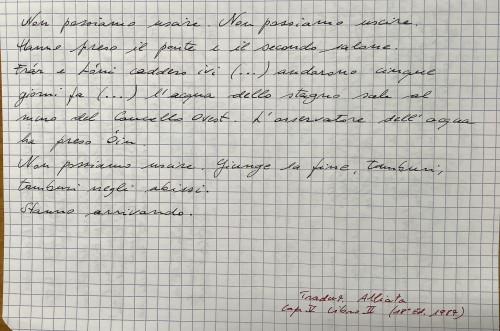 Non possiamo uscire. Non possiamo uscire.
Hanno preso il ponte e il secondo salone.
Frár e Lóni caddero ivi (...) andarono cinque
giorni fa (...) l'acqua dello stagno sale al
muro del Cancello Ovest. L'osservatore dell'acqua
ha preso Óin.
Non possiamo uscire. Giunge la fine, tamburi,
tamburi negli abissi.
Stanno arrivando.
Traduz. Alliata
Cap. V Libro II (18ª Ed. 1987)